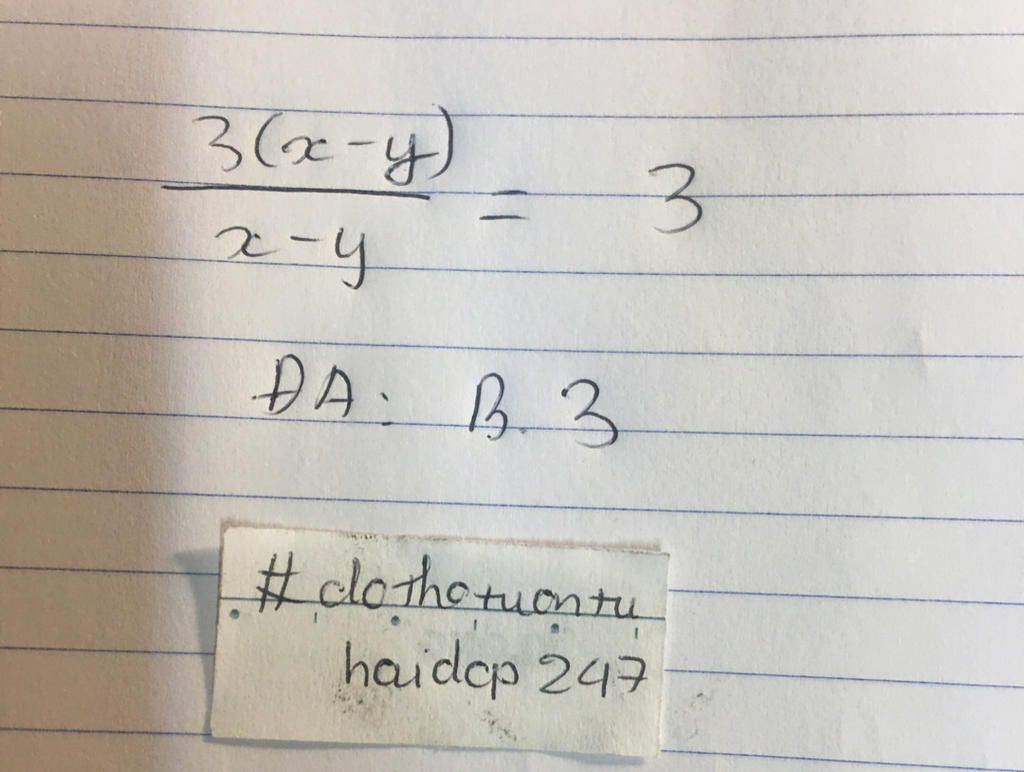 3(x-y)/x-y = 3
ĐA: B. 3
#dothotuontu
haidcp247